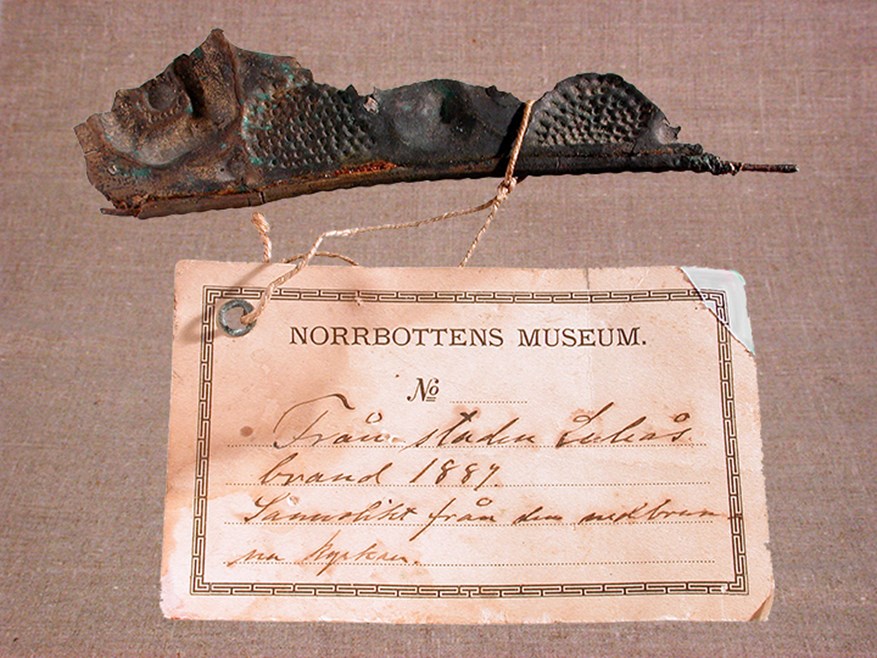 NORRBOTTENS MUSEUM.
No
Från staden Luleås
brand 1887.
Sannolikt från den nedbrun-
na kyrkan.